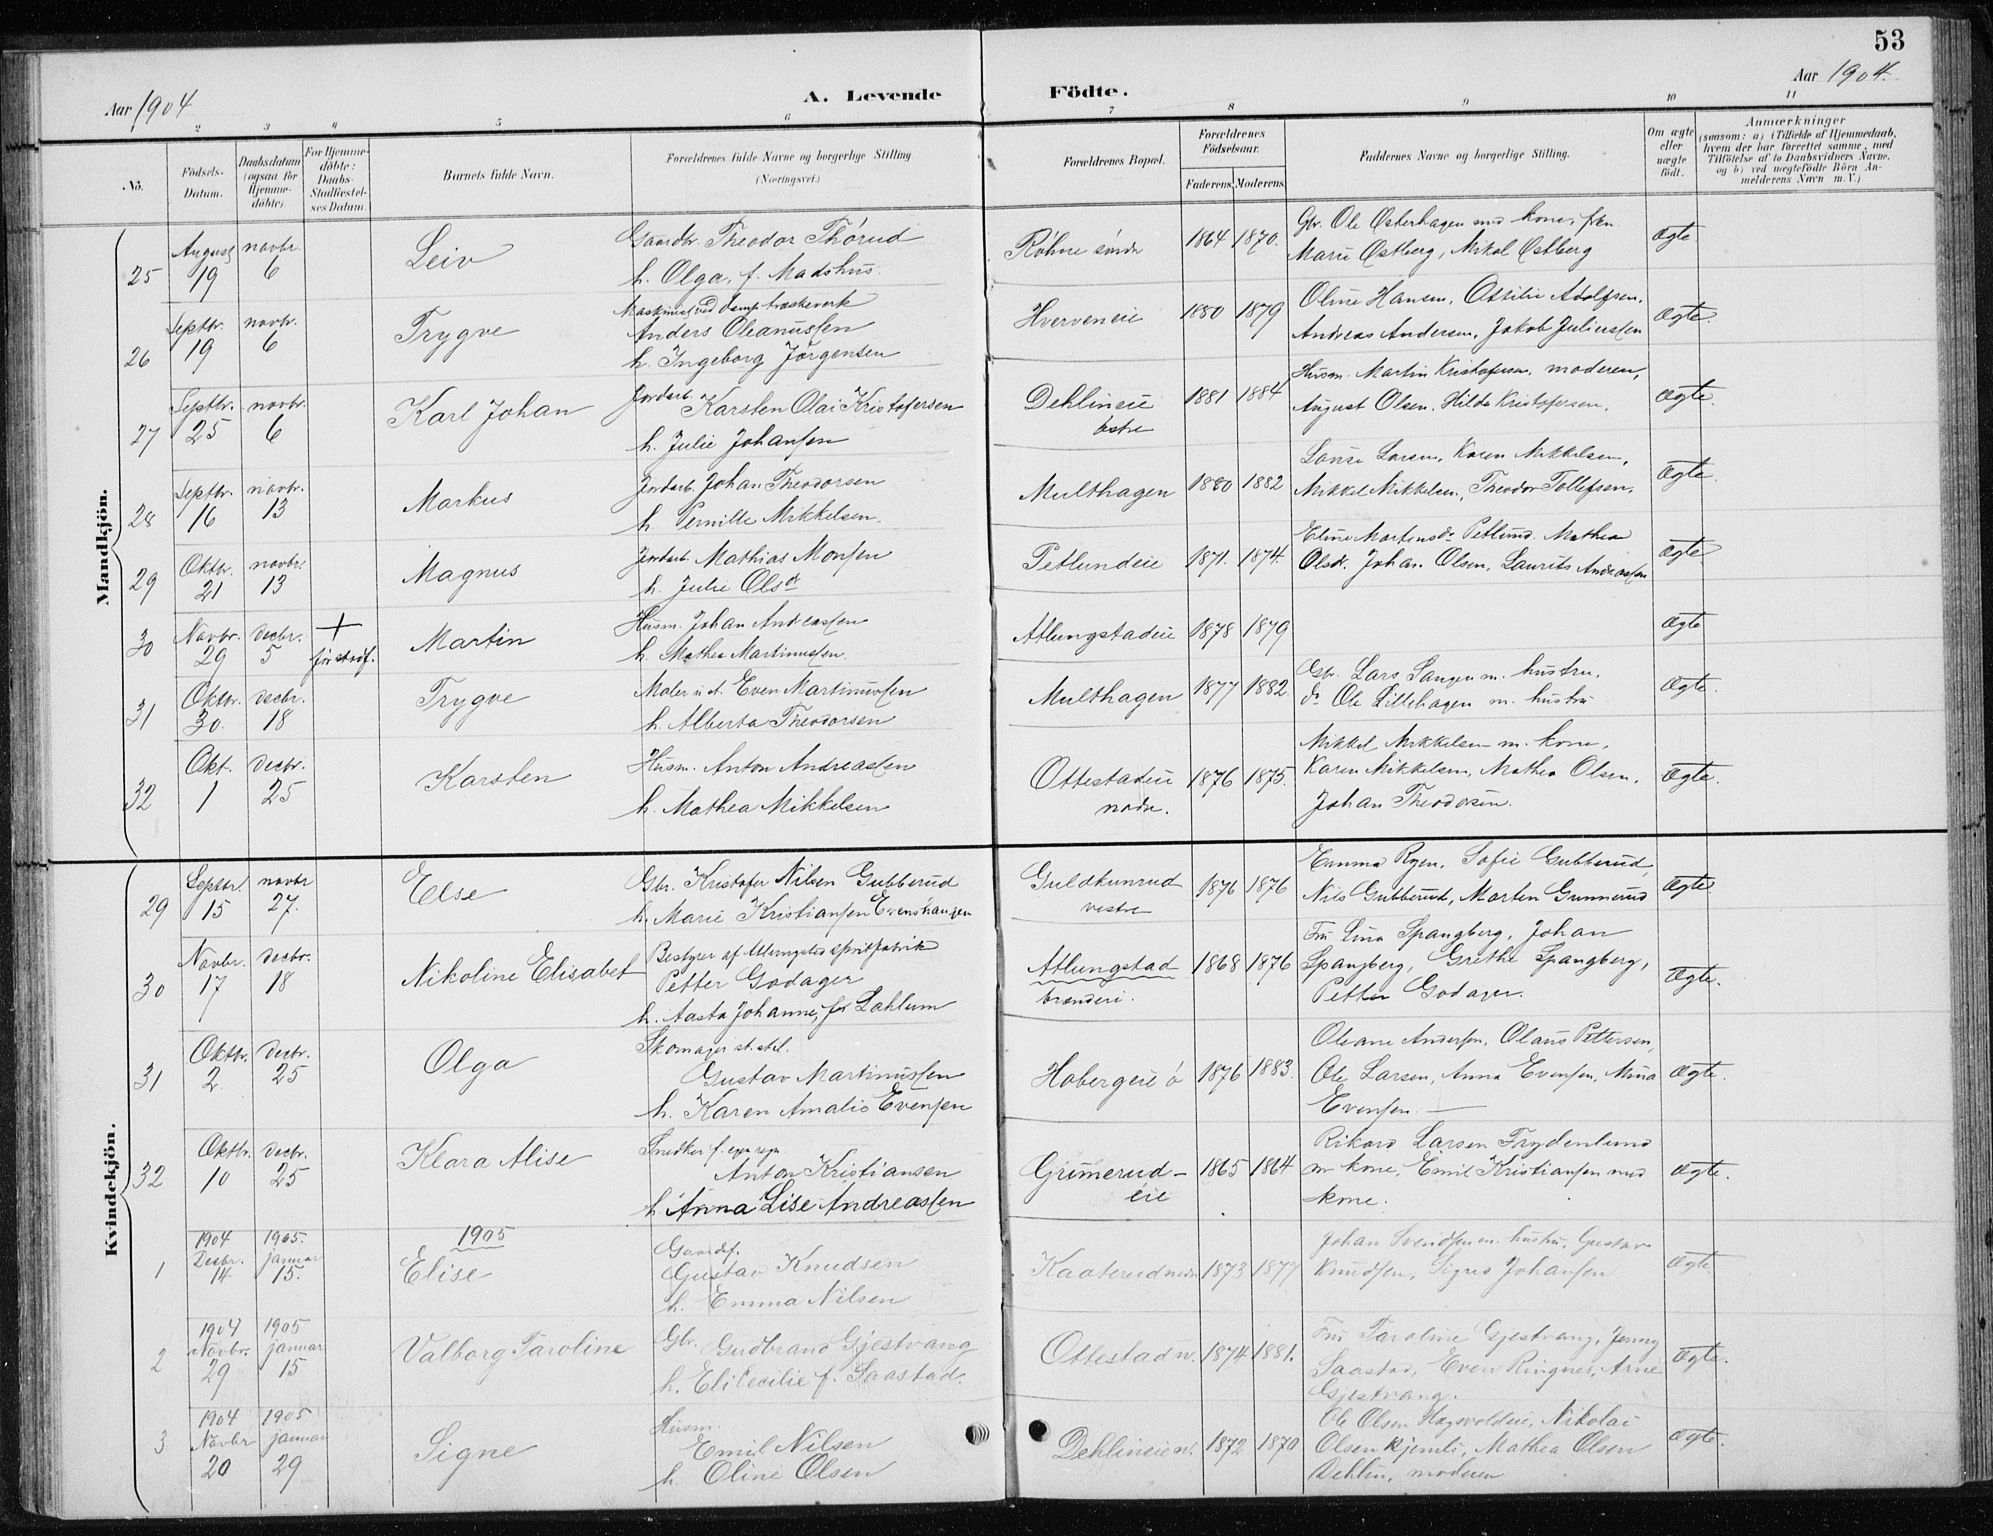 53
Aar 1904
A. Levende Födte.
Aar 1904.
1 2 3 4 5 6 7 8 9 10 11
No.
Födsels-Datum.
Daabsdatum (ogsaa for Hjemme-döbte).
For Hjemme-döbte: Daabs-Stadfæstel-ses Datum.
Barnets fulde Navn.
Forældrenes fulde Navne og borgerlige Stilling. (Næringsvei.)
Forældrenes Bopæl.
Forældrenes Födselsaar.
Faderens. Moderens.
Faddernes Navne og borgerlige Stilling.
Om ægte eller uægte födt.
Anmærkninger
(saasom: a) i Tilfælde af Hjemmedaab, hvem der har forrettet samme, med Tilföielse af to Daabsvidners Navne, og b) ved uægtefödte Börn An-melderens Navn m. V.)
Mandkjön.
25 August 19 novbr. 6 Leiv
Gaardbr. Theodor Thórud
h. Olga, f. Madshus.
Röhne söndr 1864 1870.
Gbr. Ole Østerhagen med kone, frkn.
Marie Østberg, Mikal Østberg
Ægte
26 Septbr. 19 novbr. 6 Trygve
Maskinist ved damptræskeverk
Anders Oleanussen
h. Ingeborg Jörgensen
Hverveneie 1880 1879
Oline Hansen, Ottilie Adolfsen,
Andreas Andersen, Jakob Juliussen
Ægte.
27 Septbr. 25 novbr. 6 Karl Johan
Jordarb. Karsten Olai Kristofersen
h. Julie Johansen
Dehlineie östre 1881 1884
Husm. Martin Kristofersen, moderen,
August Olsen, Hilda Kristofersen.
Ægte.
28 Septbr. 16 novbr. 13 Markus
Jordarb. Johan Theodorsen
h. Pernille Mikkelsen.
Multhagen 1880 1882
Lovise Larsen, Karen Mikkelsen,
Mikkel Mikkelsen, Theodor Tollefsen.
Ægte.
29 Oktbr. 21 novbr. 13 Magnus
Jordarb. Mathias Monsen
h. Julie Olsdr
Petlundeie 1871. 1874.
Eline Martinsdr Petlund, Mathea
Olsdr. Johan Olsen, Laurits Andreassen
Ægte.
30 Novbr. 29 decbr. 5 + för stadf. Martin
Husm. Johan Andreassen
h. Mathea Martinussen.
Atlungstadeie 1878 1879
Ægte
31 Oktbr. 30. decbr. 18 Trygve
Maler Even Martinussen
h. Alberta Theodorsen
Multhagen 1877 1882.
Gbr. Lars Sangen m. hustru,
do Ole Lillehagen m. hustru
Ægte.
32 Okt. 1 decbr. 25 Karsten
Husm. Anton Andreassen
h. Mathea Mikkelsen
Ottestadeie nodr. 1876 1875.
Mikkel Mikkelsen m. kone,
Karen Mikkelsen, Mathea Olsen,
Johan Theodorsen.
Ægte.
Kvindekjön.
29 Septbr. 15 novbr 27. Else
Gbr. Kristofer Nilsen Gubberud
h. Marie Kristiansen Evenshaugen
Guldkunrud vestre 1876 1876
Emma Ryen, Sofie Gubberud,
Nils Gubberud, Morten Gunnerud
Ægte.
30 Novbr. 17 decbr. 18 Nikoline Elisabet
Bestyrer af Atlungstad spritfabrik
Petter Godager
h. Aasta Johanne, för Dahlum
Atlungstad brænderi. 1868 1876
Fru Lina Spangberg, Johan
Spangberg, Grethe Spangberg,
Petter Godager.
Ægte.
31 Oktbr. 2. decbr. 25 Olga
Skomager
Gustav Martinussen
h. Karen Amalie Evensen
Hobergeie ö 1876 1883.
Oleane Andersen, Olaus Pettersen,
Ole Larsen, Anna Evensen, Mina
Evensen. —
Ægte.
32 Oktbr. 10 decbr. 25 Klara Alise
Snedker f. egen regn
Anton Kristiansen
h. Anna Lise Andreassen
Grimerud-eie 1865 1864
Rikard Larsen Frydenlund
m kone, Emil Kristiansen med
kone.
Ægte.
1905
1 1904 Decbr. 14 1905. januar 15. Elise
Gaardf.
Gustav Knudsen
h. Emma Nilsen
Kaaterud nedr 1873 1877
Johan Svendsen m. hustru, Gustav
Knudsen, Sigrid Johansen
Ægte.
2 1904 Novbr. 29 1905 januar 15 Valborg Taroline
Gbr. Gudbrand Gjestvang
h. Eli Cecilie f. Saastad.
Ottestad n. 1874 1881.
Fru Taroline Gjestvang, Jenny
Saastad, Even Ringnes, Arne
Gjestvang.
Ægte.
3 1904 Novbr 20 1905 januar 29 Signe
Husm.
Emil Nilsen
h. Oline Olsen
Dehlineie n. 1872 1870
Ole Olsen Hagsvoldeie, Nikolai
Olsen Kjemli, Mathea Olsen
Dehlin, moderen
Ægte.